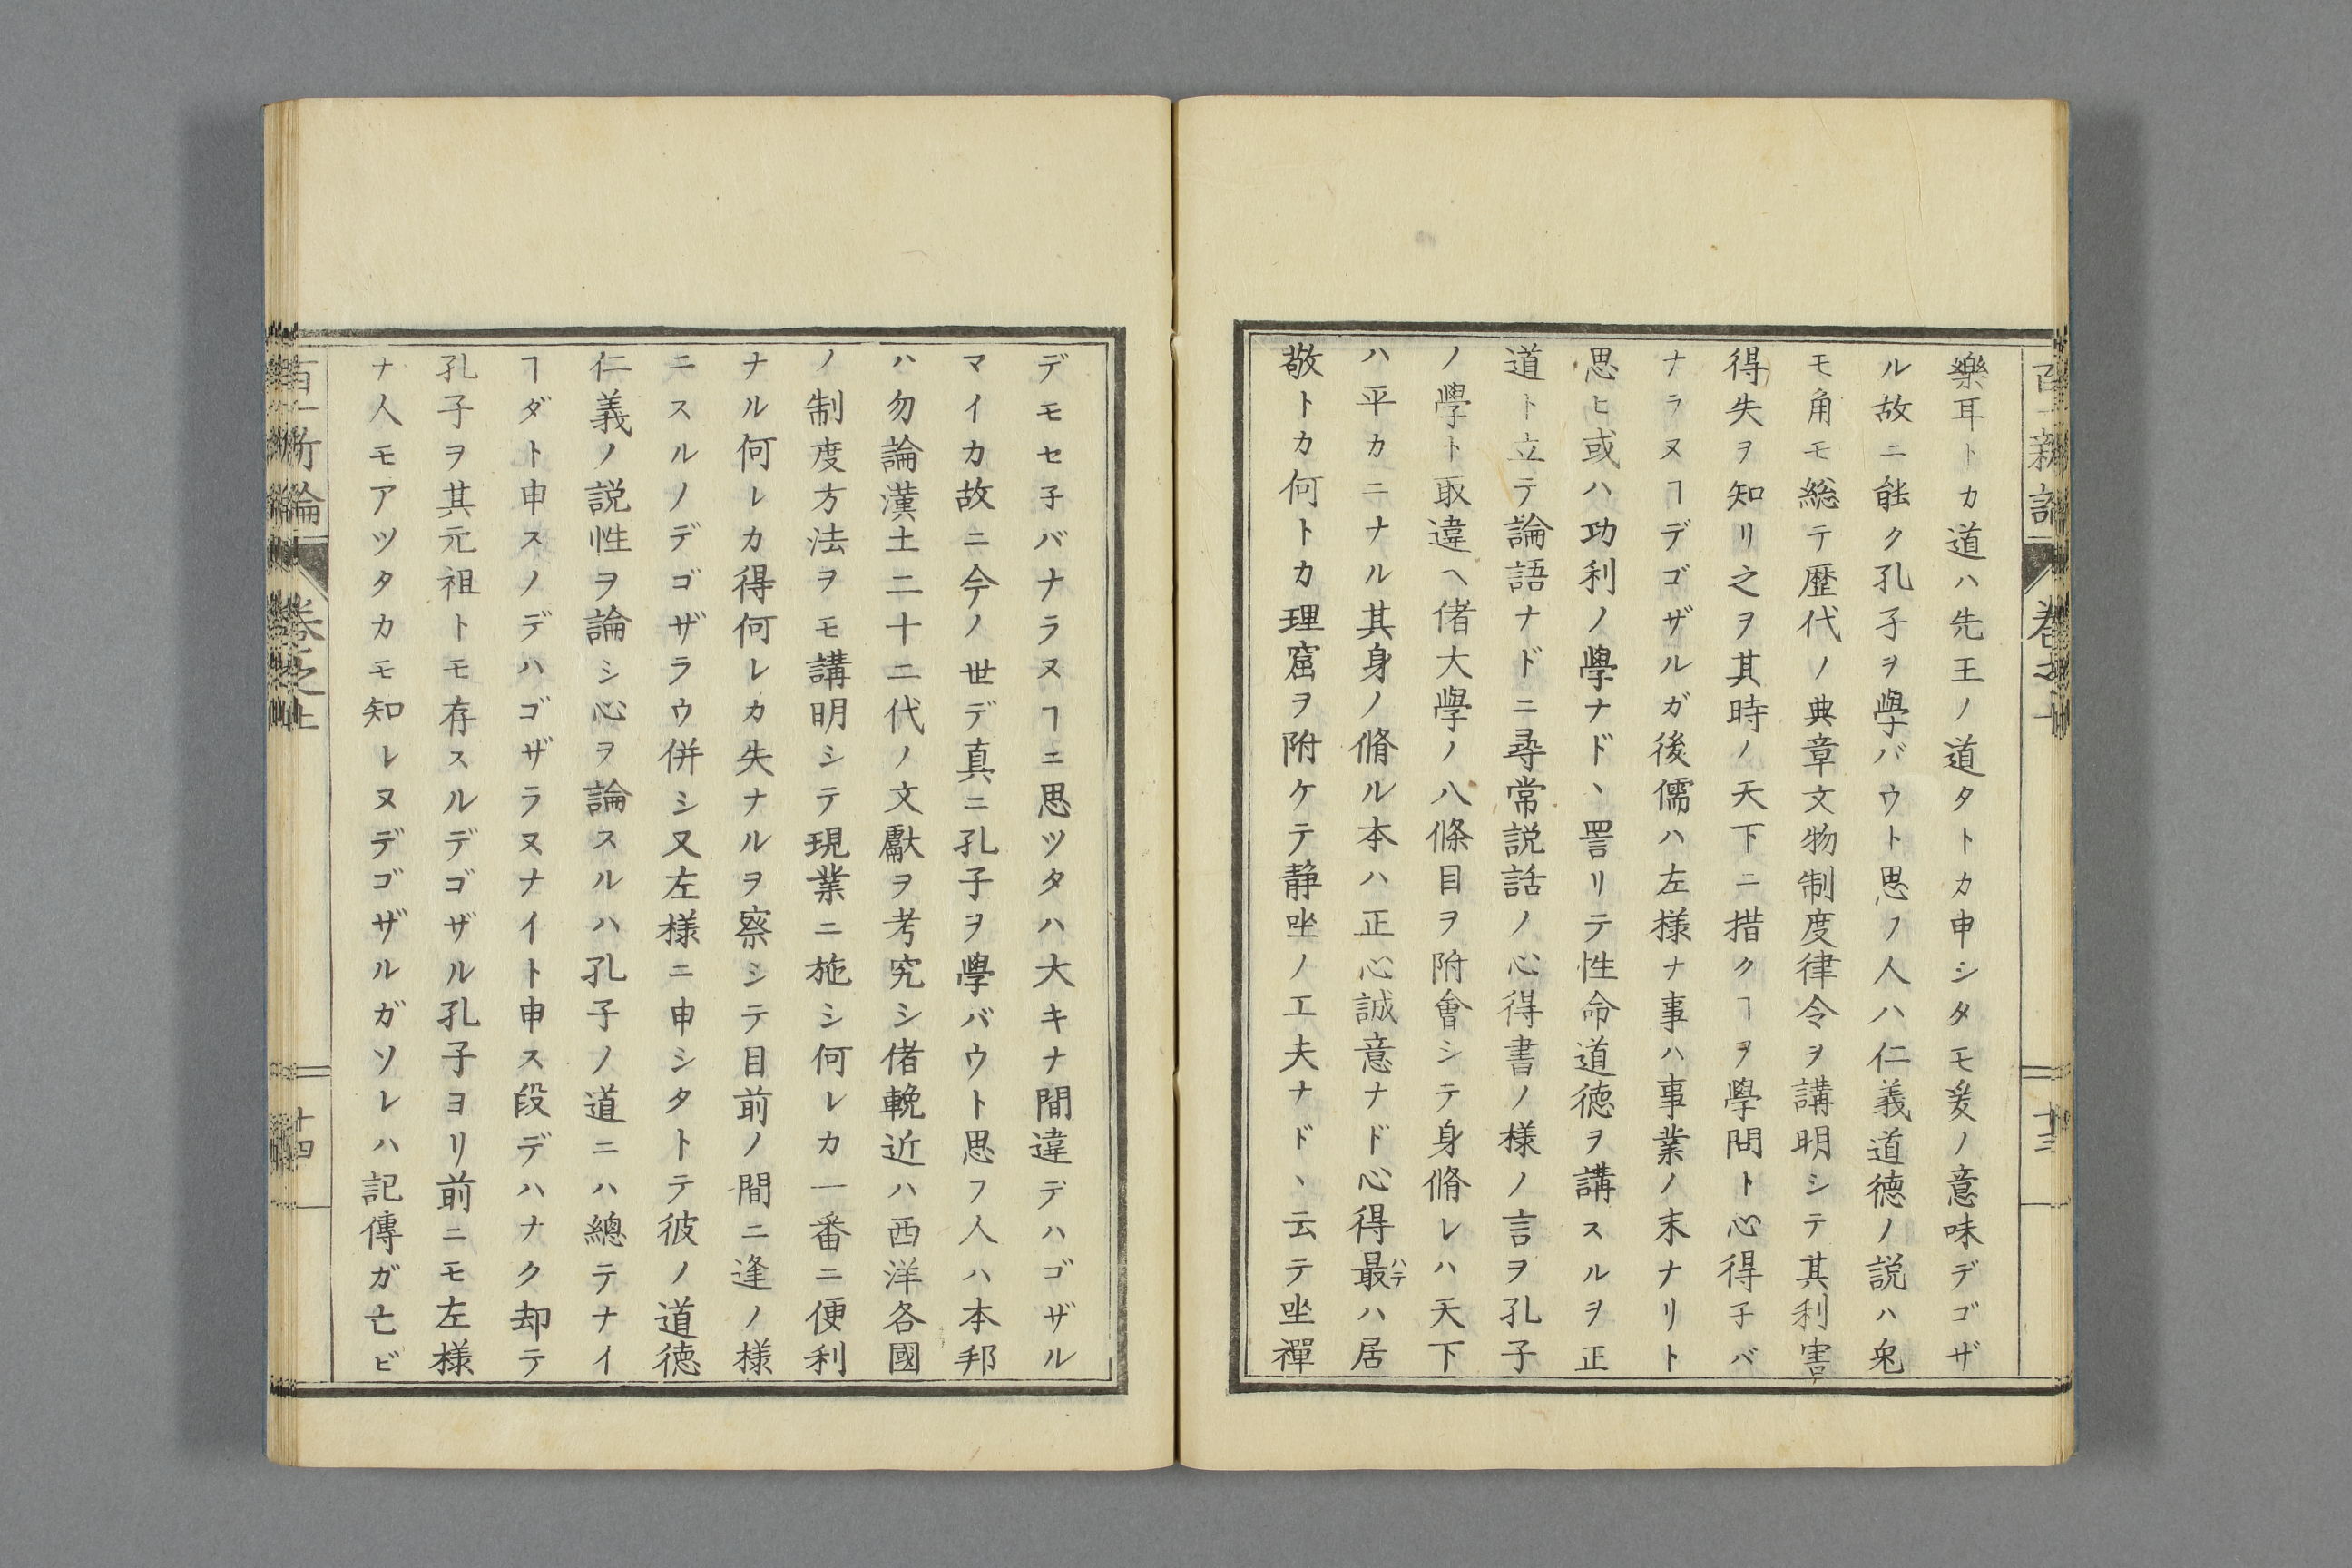 百一新論 巻之上 十三
樂耳トカ道ハ先王ノ道タトカ申シタモ爰ノ意味デゴザ
ル故ニ能ク孔子ヲ學バウト思ノ人ハ仁義道徳ノ説ハ兔
モ角モ総テ歴代ノ典章文物制度律令ヲ講明シテ其利害
得失ヲ知リ之ヲ其時ノ天下ニ措クヿヲ學問ト心得子バ
ナラヌヿデゴザルガ後儒ハ左様ナ事ハ事業ノ末ナリト
思ヒ或ハ功利ノ學ナド丶詈リテ性命道徳ヲ講スルヲ正
道ト立テ論語ナドニ尋常説話ノ心得書ノ様ノ言ヲ孔子
ノ學ト取違ヘ偖大學ノ八條目ヲ附會シテ身脩レハ天下
ハ平カニナル其身ノ脩ル本ハ正心誠意ナド心得最ハテハ居
敬トカ何トカ理窟ヲ附ケテ静坐ノ工夫ナド丶云テ坐禪
デモセ子バナラヌヿニ思ツタハ大キナ間違デハゴザル
マイカ故ニ今ノ世デ真ニ孔子ヲ學バウト思フ人ハ本邦
ハ勿論漢土二十二代ノ文獻ヲ考究シ偖輓近ハ西洋各國
ノ制度方法ヲモ講明シテ現業ニ施シ何レカ一番ニ便利
ナル何レカ得何レカ失ナルヲ察シテ目前ノ間ニ逢ノ様
ニスルノデゴザラウ併シ又左様ニ申シタトテ彼ノ道徳
仁義ノ説性ヲ論シ心ヲ論スルハ孔子ノ道ニハ總テナイ
ヿダト申スノデハゴザラヌナイト申ス段デハナク却テ
孔子ヲ其元祖トモ存スルデゴザル孔子ヨリ前ニモ左様
ナ人モアツタカモ知レヌデゴザルガソレハ記傳ガ亡ビ
百一新論 巻之上 十四